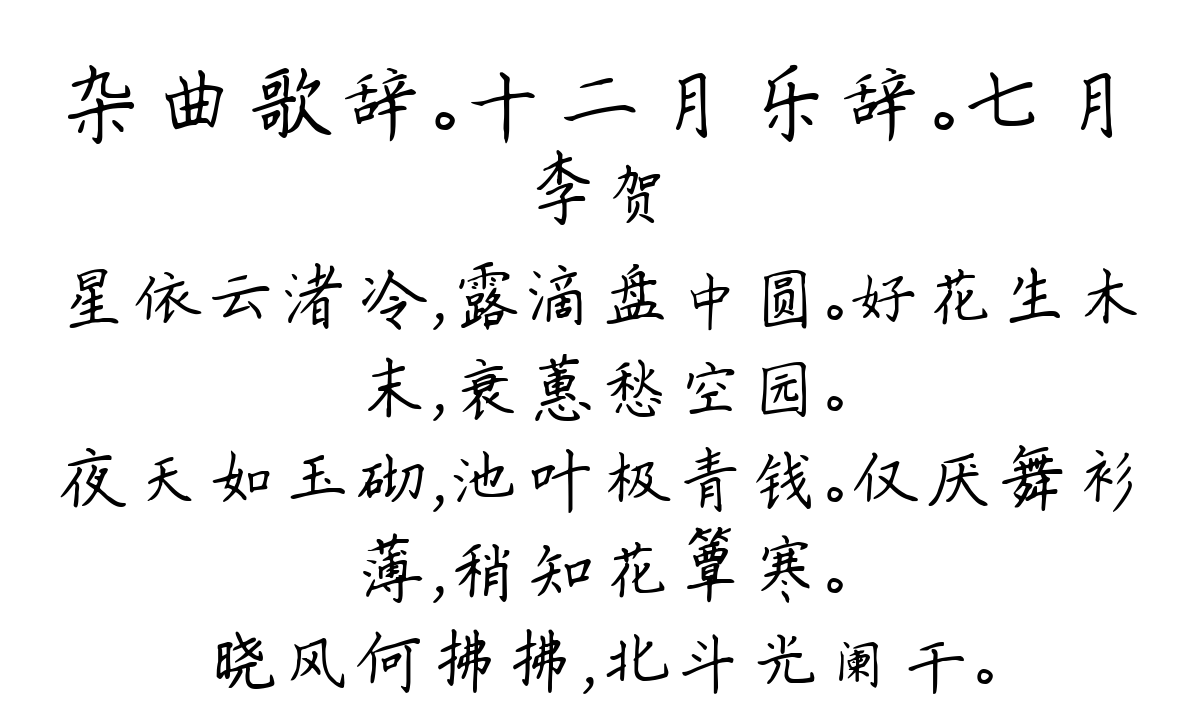 杂曲歌辞。十二月乐辞。七月
李贺
星依云渚冷,露滴盘中圆。好花生木
末,衰蕙愁空园。
夜天如玉砌,池叶极青钱。仅厌舞衫
薄,稍知花簟寒。
晓风何拂拂,北斗光阑干。